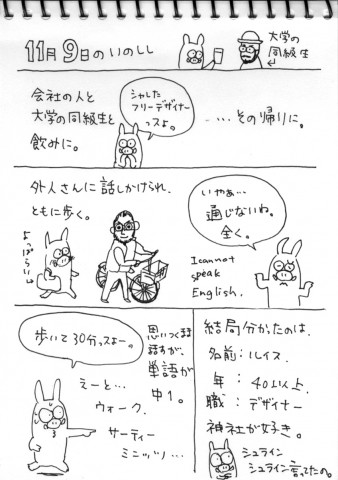 11月9日のいのしし
大学の
同級生
会社の人と
大学の同級生と
飲みに。
シャレた
フリーデザイナー
っスよ。
・・・・その帰りに。
外人さんに話しかけられ、
ともに歩く。
よっぱらい
いやぁ…
通じないわ。
全く。
I cannot
speak
English.
歩いて30分っスよー。
思いつくまま
話すが、
単語が
中1。
えーと…
ウォーク。
サーティー
ミニッツ…
結局分かったのは、
名前：ルイス
年：40以上。
職：デザイナー
神社が好き。
シュライン
シュライン言ってたの。